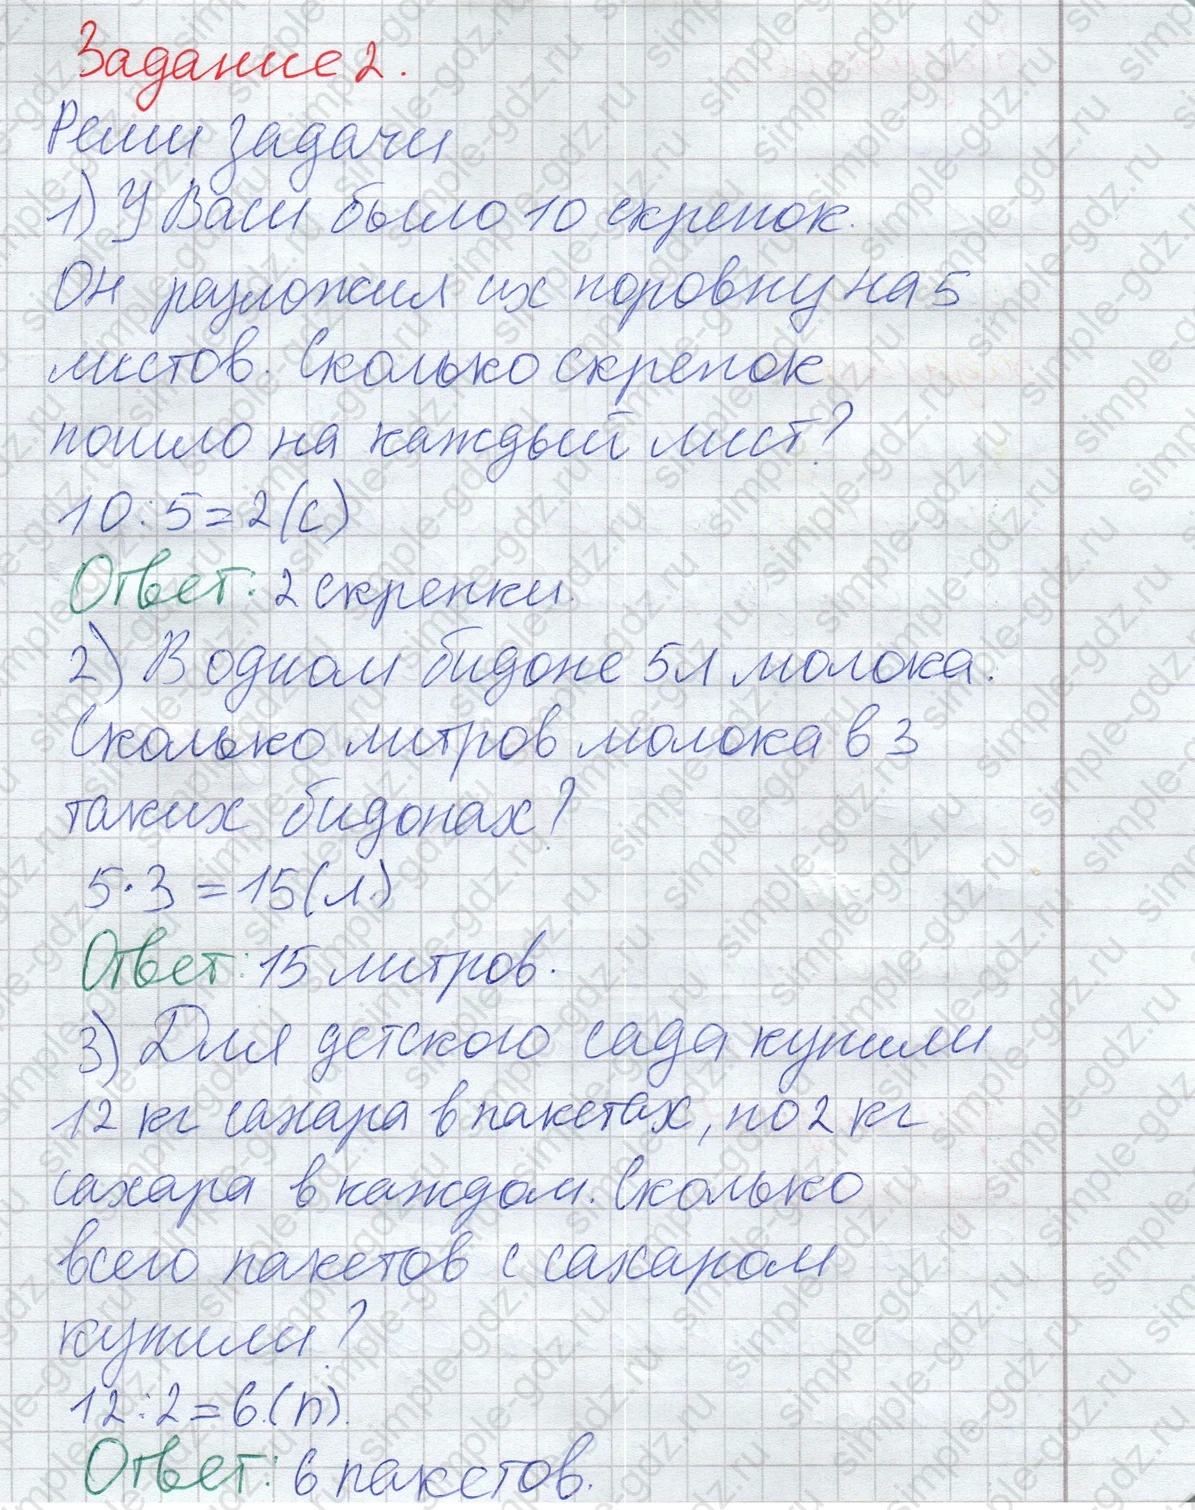 Задание 2.
Реши задачи
1) У Васи было 10 скрепок.
Он разложил их поровну на 5
листов. Сколько скрепок
пошло на каждый лист?
10:5=2(с)
Ответ: 2 скрепки.
2) В одном бидоне 5л молока.
Сколько литров молока в 3
таких бидонах?
5·3=15(л.)
Ответ: 15 литров.
3) Для детского сада купили
12 кг сахара в пакетах, по 2 кг
сахара в каждом. Сколько
всего пакетов с сахаром
купили?
12:2=6.(п).
Ответ: 6 пакетов.
simple-gdz.ru